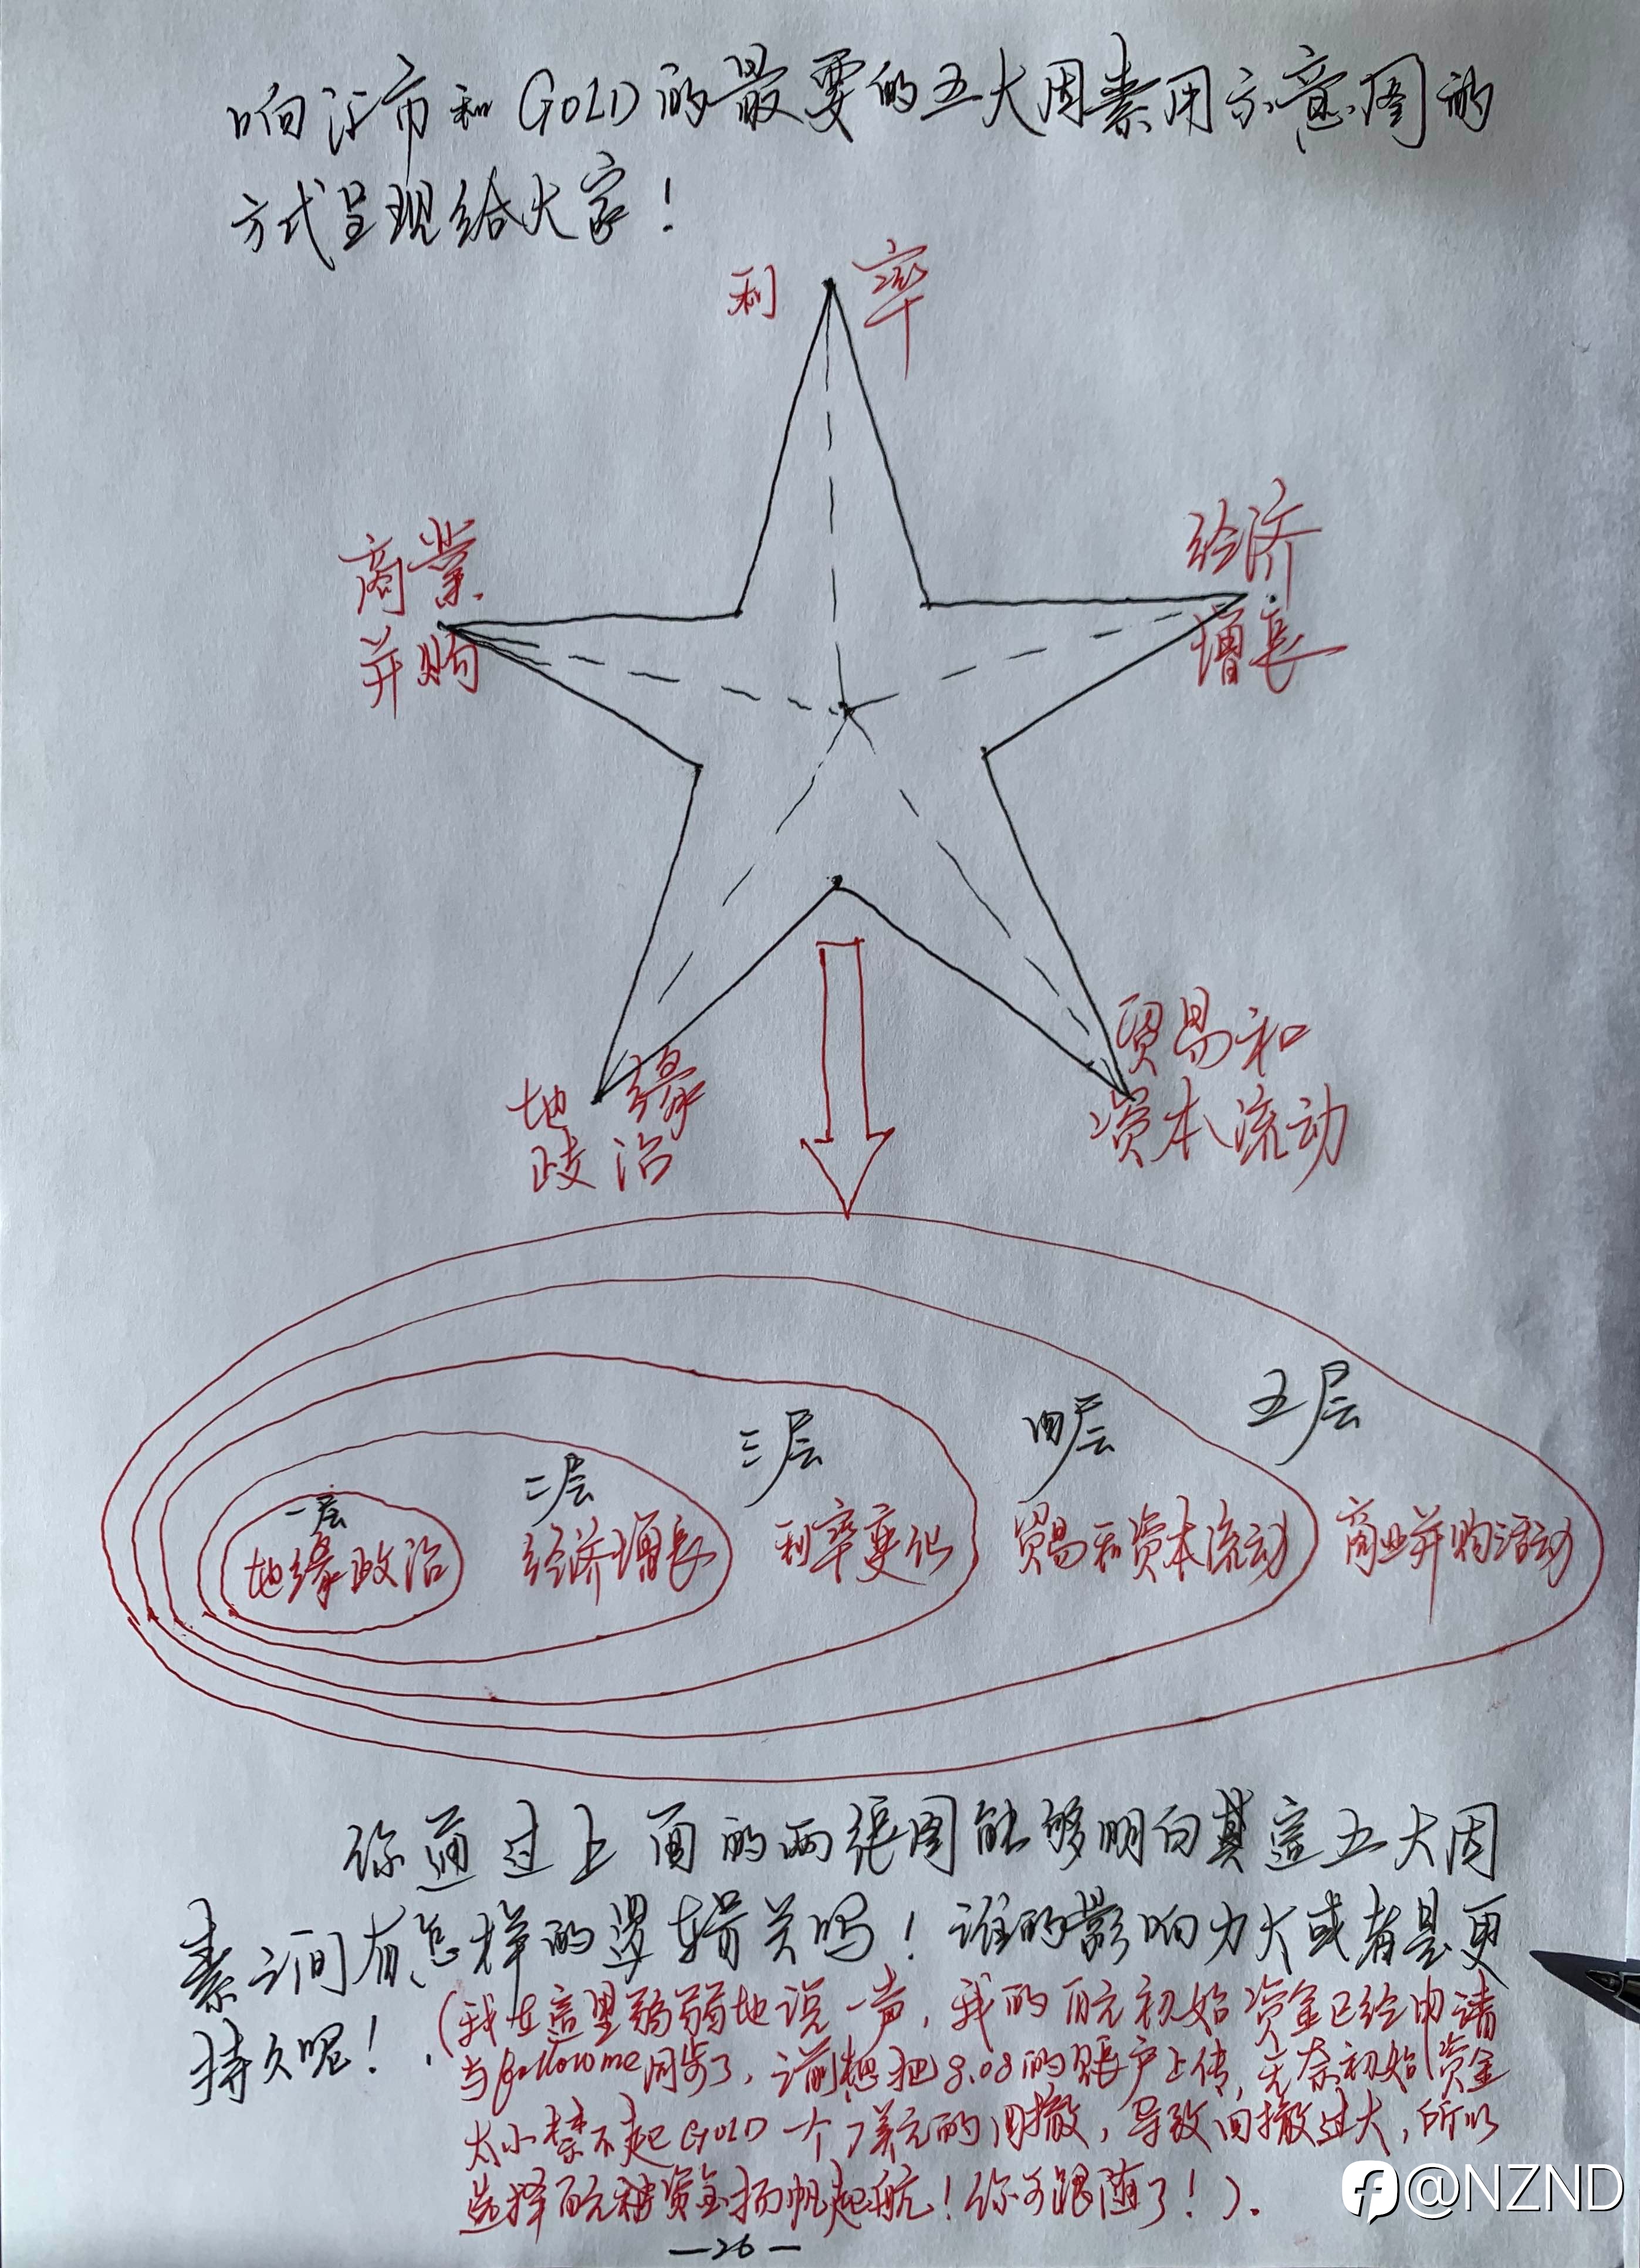 响汇市和GOLD的最要的五大因素用示意图的
方式呈现给大家！
利 率
商業
并购
经济
增長
地缘
政治
贸易和
资本流动
一层
地缘政治
二层
经济增長
三层
利率变化
四层
贸易和资本流动
五层
商业并购活动
你通过上面的两张图能够明白其這五大因
素之间有怎样的逻辑关吗！谁的影响力大或者是更
持久呢！
(我在這里弱弱地说一声，我的百元初始资金已经申请
与followme同步了，之前想把8.08的賬户上传，无奈初始资金
太小禁不起GOLD一个7美元的回撤，导致回撤过大，所以
选择百元 资金扬帆起航！你可跟随了！)。
—26—
@NZND